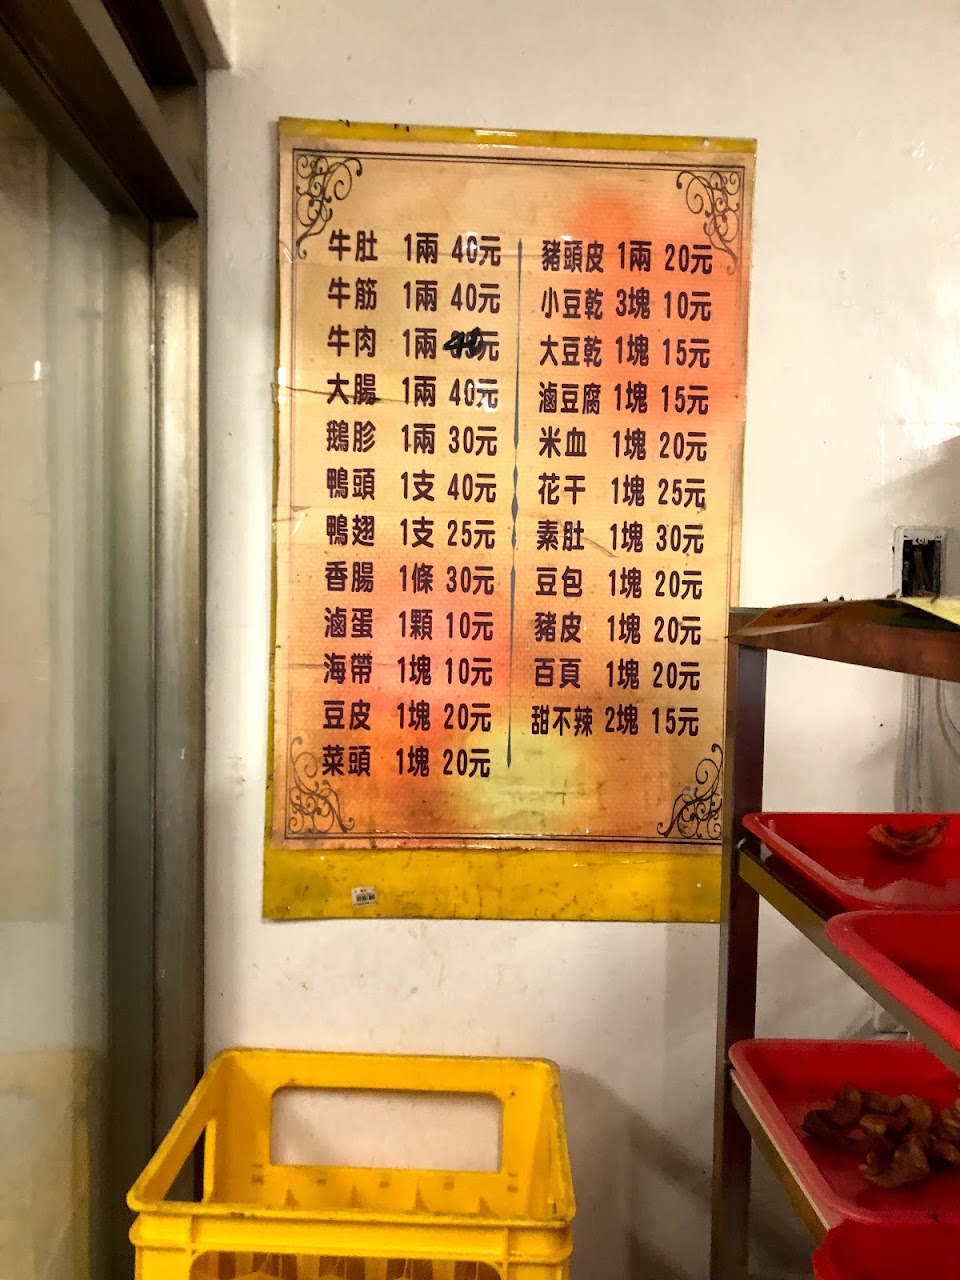 牛肚 1兩 40元
牛筋 1兩 40元
牛肉 1兩 40元
大腸 1兩 40元
鵝胗 1兩 30元
鴨頭 1支 40元
鴨翅 1支 25元
香腸 1條 30元
滷蛋 1顆 10元
海帶 1塊 10元
豆皮 1塊 20元
菜頭 1塊 20元
豬頭皮 1兩 20元
小豆乾 3塊 10元
大豆乾 1塊 15元
滷豆腐 1塊 15元
米血 1塊 20元
花干 1塊 25元
素肚 1塊 30元
豆包 1塊 20元
豬皮 1塊 20元
百頁 1塊 20元
甜不辣 2塊 15元